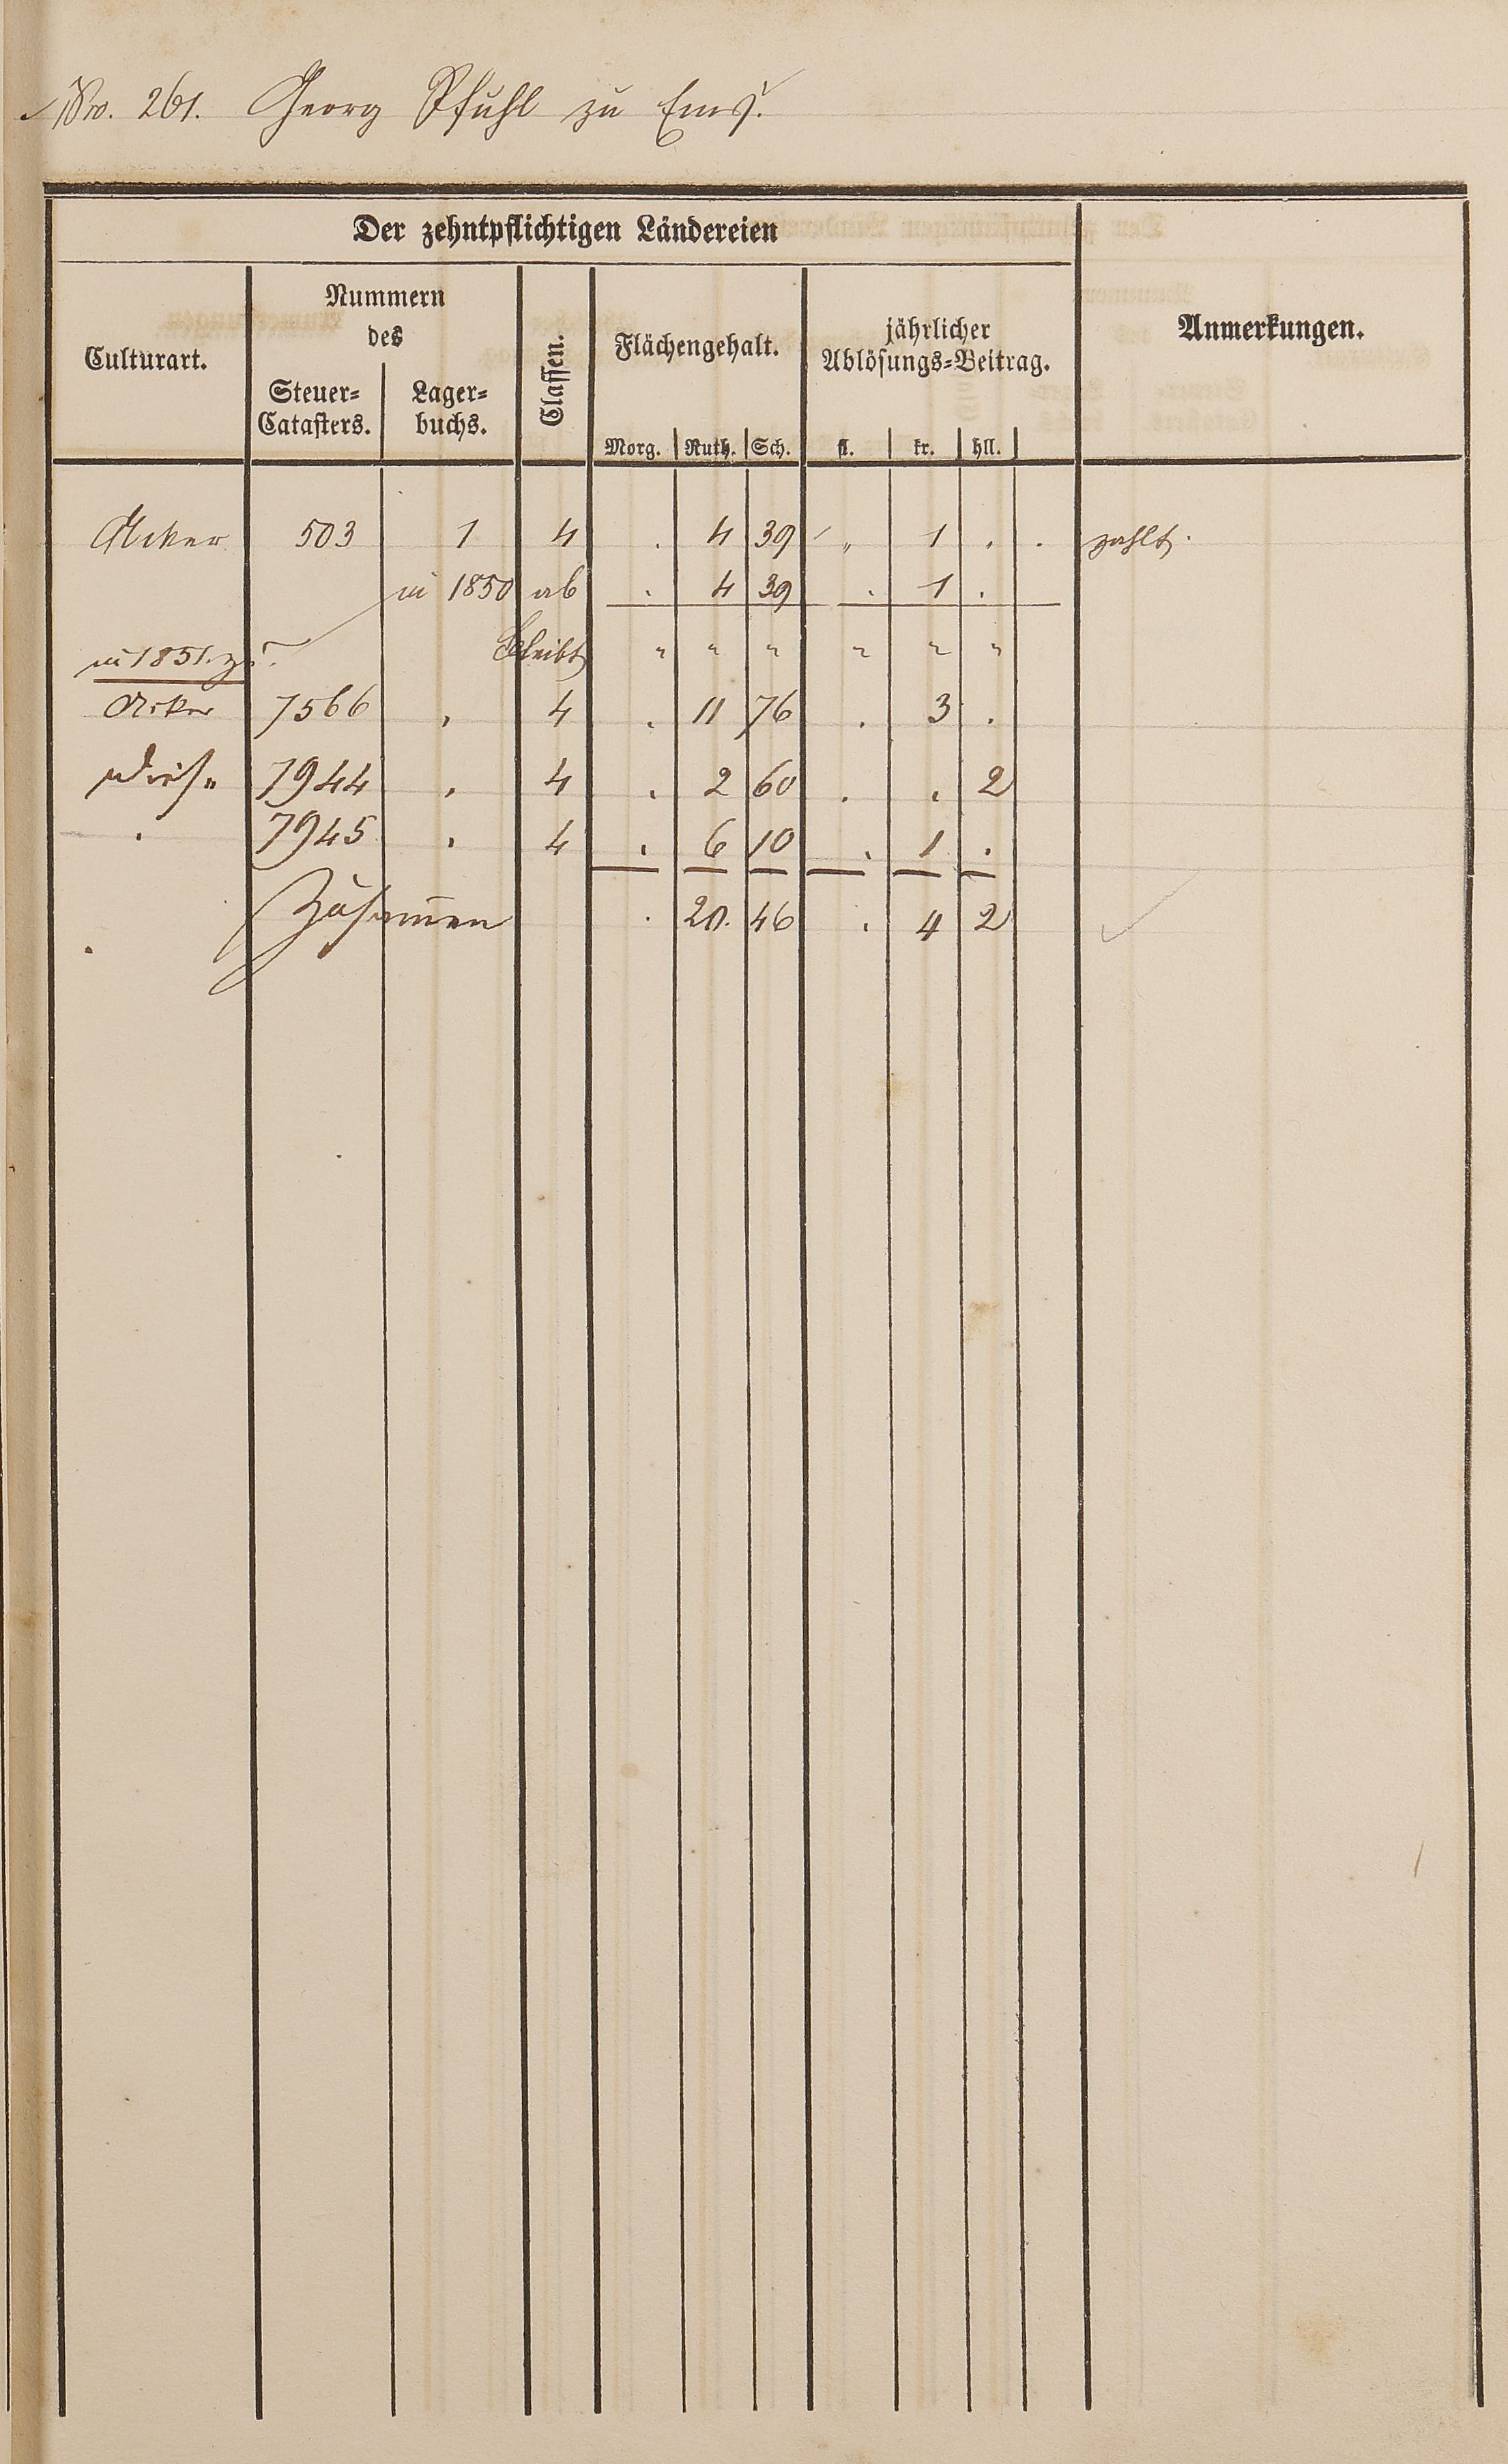 No. 261. Georg Pfuhl zu Ems.
Der zehntpflichtigen Ländereien
Culturart.
Nummern
des
Steuer-
Catasters.
Lager-
buchs.
Classen.
Flächengehalt.
Morg. Ruth. Sch.
jährlicher
Ablösungs-Beitrag.
fl. kr. hll.
Anmerkungen.
Acker 503 1 4 . 4 39 „ 1 . . zahlt.
in 1850 ab . 4 39 . 1 .
bleibt " " " " " "
in 1851. zu.
Acker 7566 . 4 . 11 76 . 3 .
Wiese 7944 . 4 . 2 60 . . 2
. 7945 . 4 . 6 10 . 1 .
Zusammen . 20. 46 . 4 2